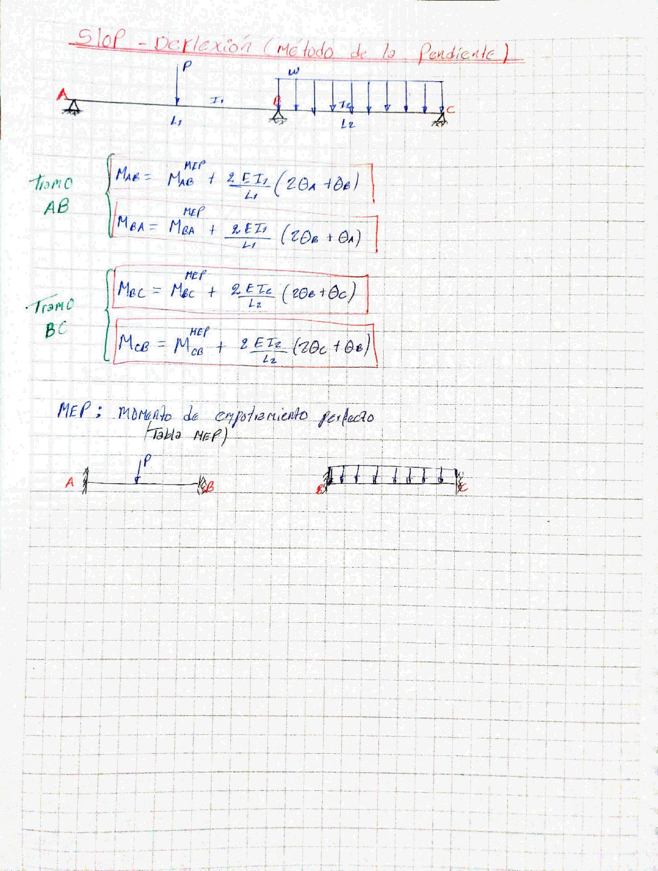 Slop - Deflexión (método de la Pendiente)
P
W
A
I₁
B
I₂
C
L₁
L₂
Tramo
AB
MAB = MAB^MEP + 2EI₁/L₁ (2θA + θB)
MBA = MBA^MEP + 2EI₁/L₁ (2θB + θA)
Tramo
BC
MBC = MBC^MEP + 2EI₂/L₂ (2θB + θC)
MCB = MCB^MEP + 2EI₂/L₂ (2θC + θB)
MEP: momento de empotramiento perfecto
(Tabla MEP)
P
A
B
B
C